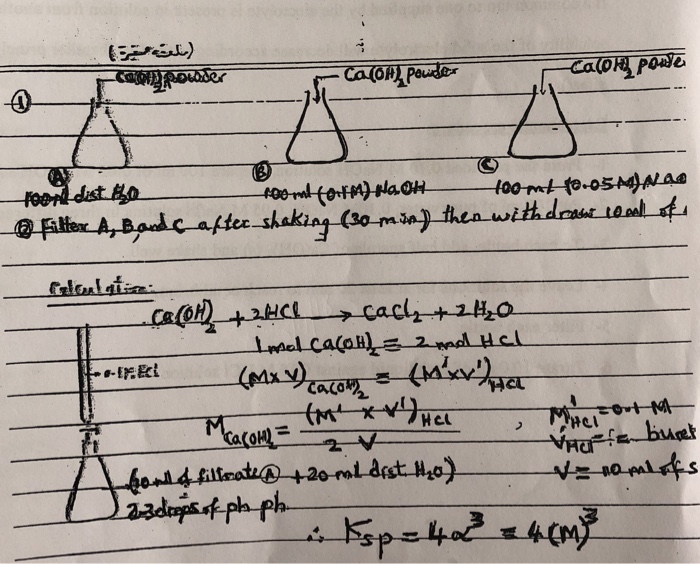 Ca(OH)₂ powder
Ca(OH)₂ powder
Ca(OH)₂ powde
①
Ⓐ
Ⓑ
Ⓒ
100ml dist H₂O
100 ml (0.1M) NaOH
100 ml (0.05M) Nao
② Filter A, B, and C after shaking (30 min) then withdraw 10ml of
Calculation:
Ca(OH)₂ + 2HCl → CaCl₂ + 2H₂O
1 mol Ca(OH)₂ ≡ 2 mol HCl
0.1M HCl
(M×V) Ca(OH)₂ = (M'×V') HCl
M Ca(OH)₂ = (M' × V') HCl / 2 V , M'HCl = 0.1 M
V'HCl = buret
V = 10 ml of s
(10ml of filtrate Ⓐ + 20 ml dist. H₂O)
2-3 drops of ph. ph.
∴ Ksp = 4α³ = 4(M)³